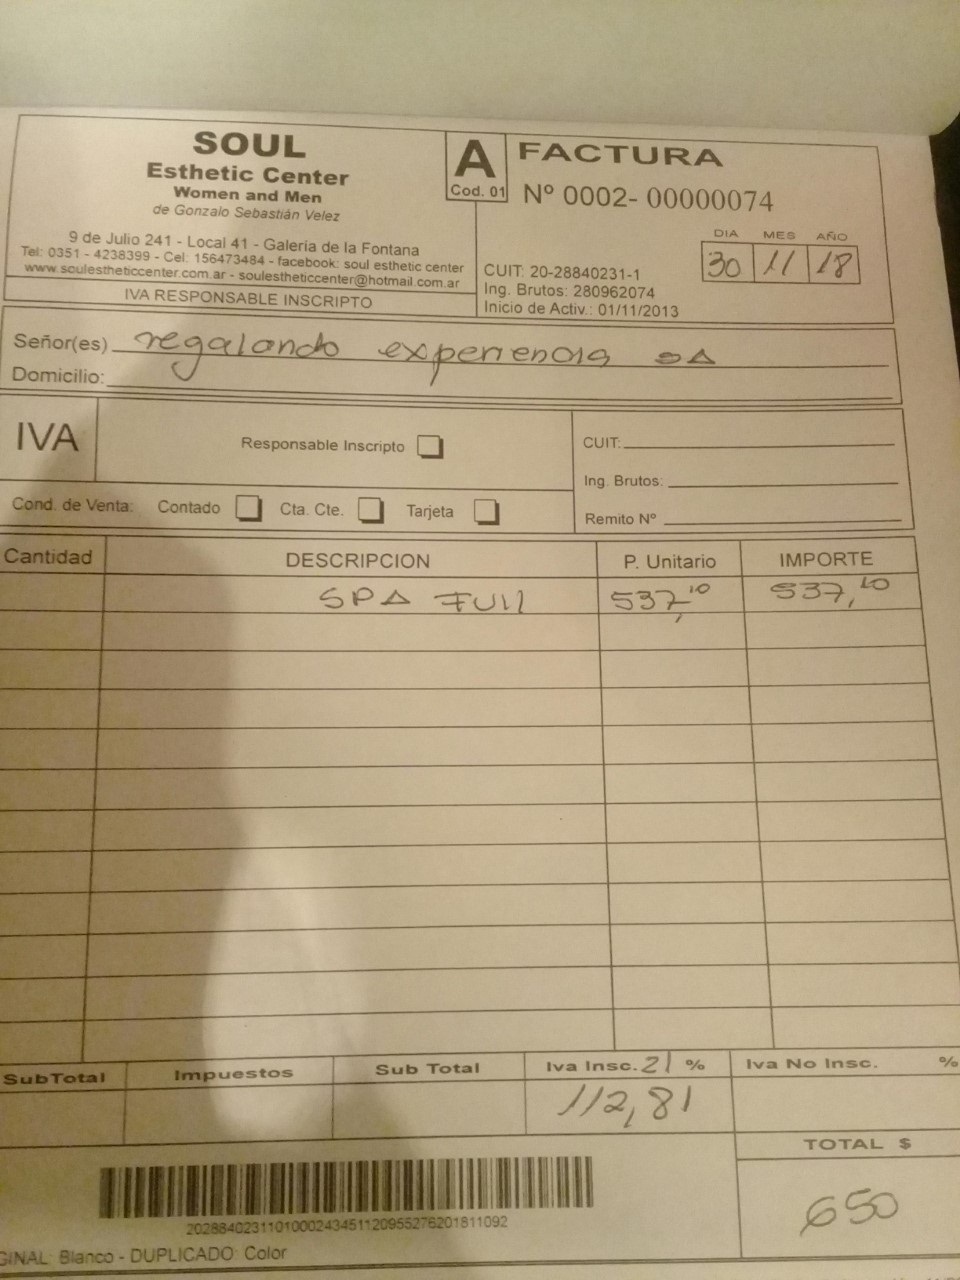 SOUL
Esthetic Center
Women and Men
de Gonzalo Sebastián Velez
9 de Julio 241 - Local 41 - Galeria de la Fontana
Tel: 0351 - 4238399 - Cel: 156473484 - facebook: soul esthetic center
www.soulestheticcenter.com.ar - soulestheticcenter@hotmail.com.ar
IVA RESPONSABLE INSCRIPTO
A
Cod. 01
FACTURA
Nº 0002- 00000074
DIA MES AÑO
30 11 18
CUIT: 20-28840231-1
Ing. Brutos: 280962074
Inicio de Activ.: 01/11/2013
Señor(es) regalando experiencia SA
Domicilio:
IVA
Responsable Inscripto
Cond. de Venta: Contado Cta. Cte. Tarjeta
CUIT:
Ing. Brutos:
Remito Nº
Cantidad DESCRIPCION P. Unitario IMPORTE
SPA Full 537,10 537,10
SubTotal Impuestos Sub Total Iva Insc. 21 % Iva No Insc. %
112,81
TOTAL $
650
2028840231101000243451120955276201811092
GINAL: Blanco - DUPLICADO: Color